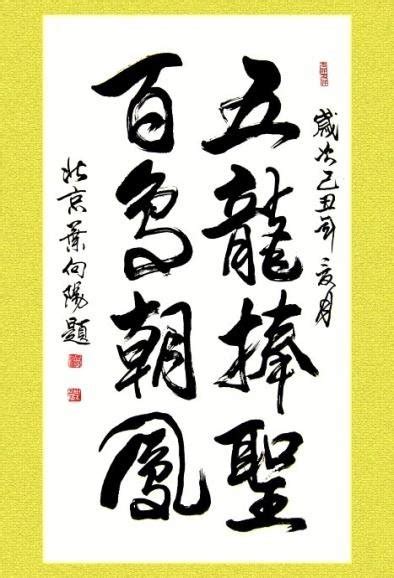 歲次己丑年亥月
五龍捧聖
百鳥朝鳳
北京葉向陽題